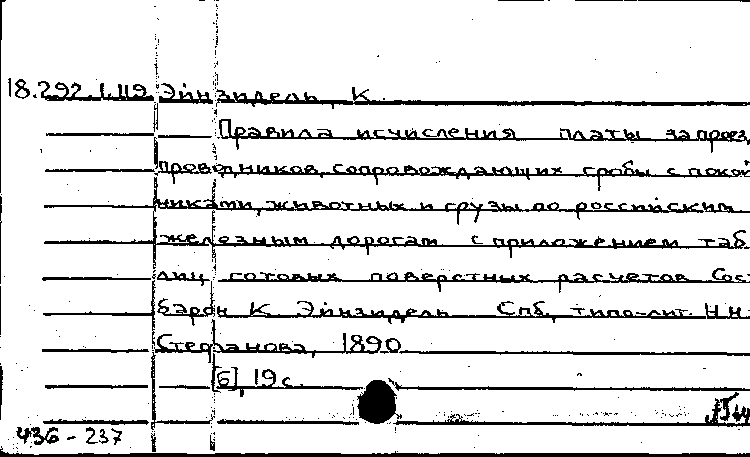 18.292.1.119 Эйнзидель, К.
Правила исчисления платы за проезд
проводников, сопровождающих гробы с покой
никами, животных и грузы по российским
железным дорогам с приложением таб
лиц готовых поверстных расчетов Сост
барон К. Эйнзидель. Спб, типо-лит. Н.Н.
Стефанова, 1890.
[6], 19 с.
436-237